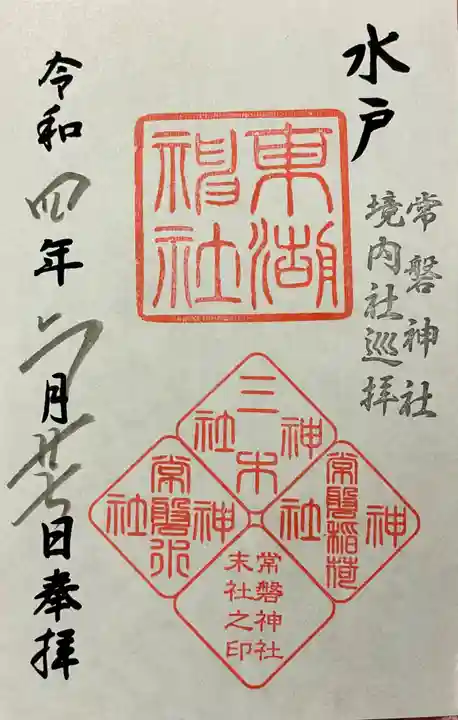 水戸
常磐神社
境内社巡拝
東湖
神社
三木
神社
常磐稲荷
神社
常磐水
神社
常磐神社
末社之印
令和四年六月廿七日奉拝